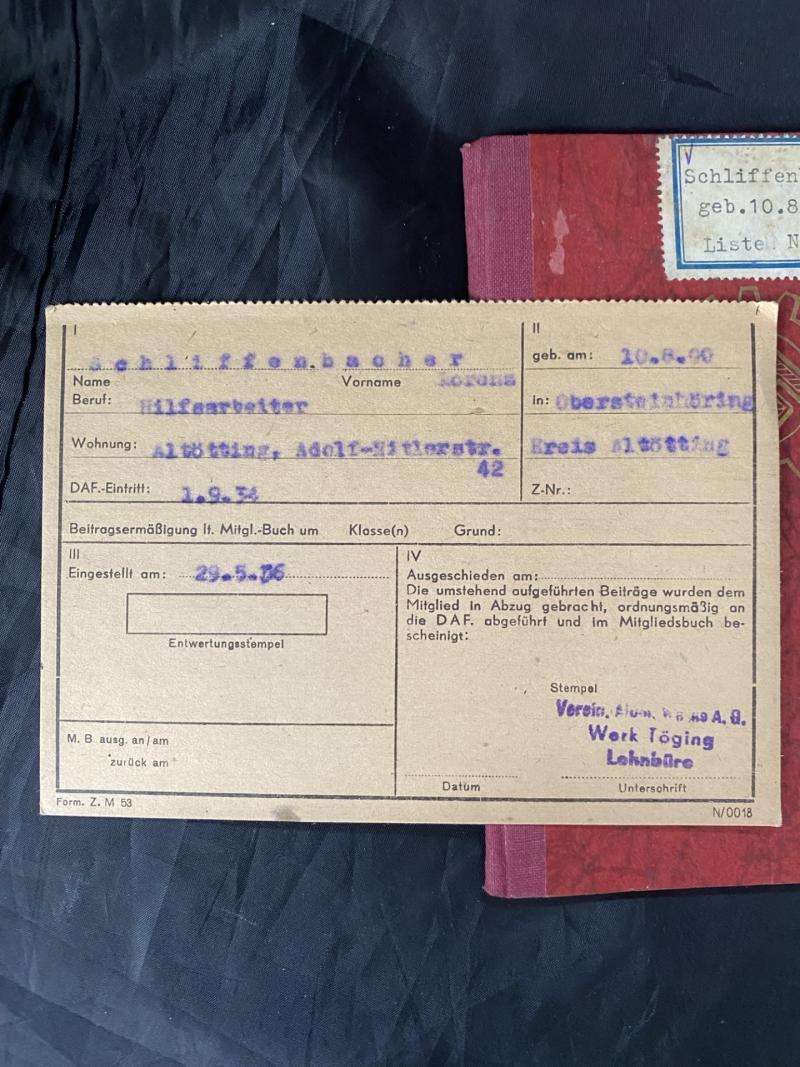 V
Schliffen
geb.10.8
Liste N
I
Schliffenbacher
Name Vorname
Beruf: Hilfsarbeiter
Wohnung: Altötting, Adolf-Hitlerstr.
42
DAF.-Eintritt: 1.9.34
II
geb. am: 10.8.00
In: Obersteinhöring
Kreis Altötting
Z-Nr.:
Beitragsermäßigung lt. Mitgl.-Buch um Klasse(n) Grund:
III
Eingestellt am: 29.5.36
Entwertungsstempel
M. B ausg. an/am
zurück am
IV
Ausgeschieden am:
Die umstehend aufgeführten Beiträge wurden dem
Mitglied in Abzug gebracht, ordnungsmäßig an
die DAF. abgeführt und im Mitgliedsbuch be-
scheinigt:
Stempel
Verein. A.G.
Werk Töging
Lohnbüro
Datum Unterschrift
Form. Z. M 53
N/0018